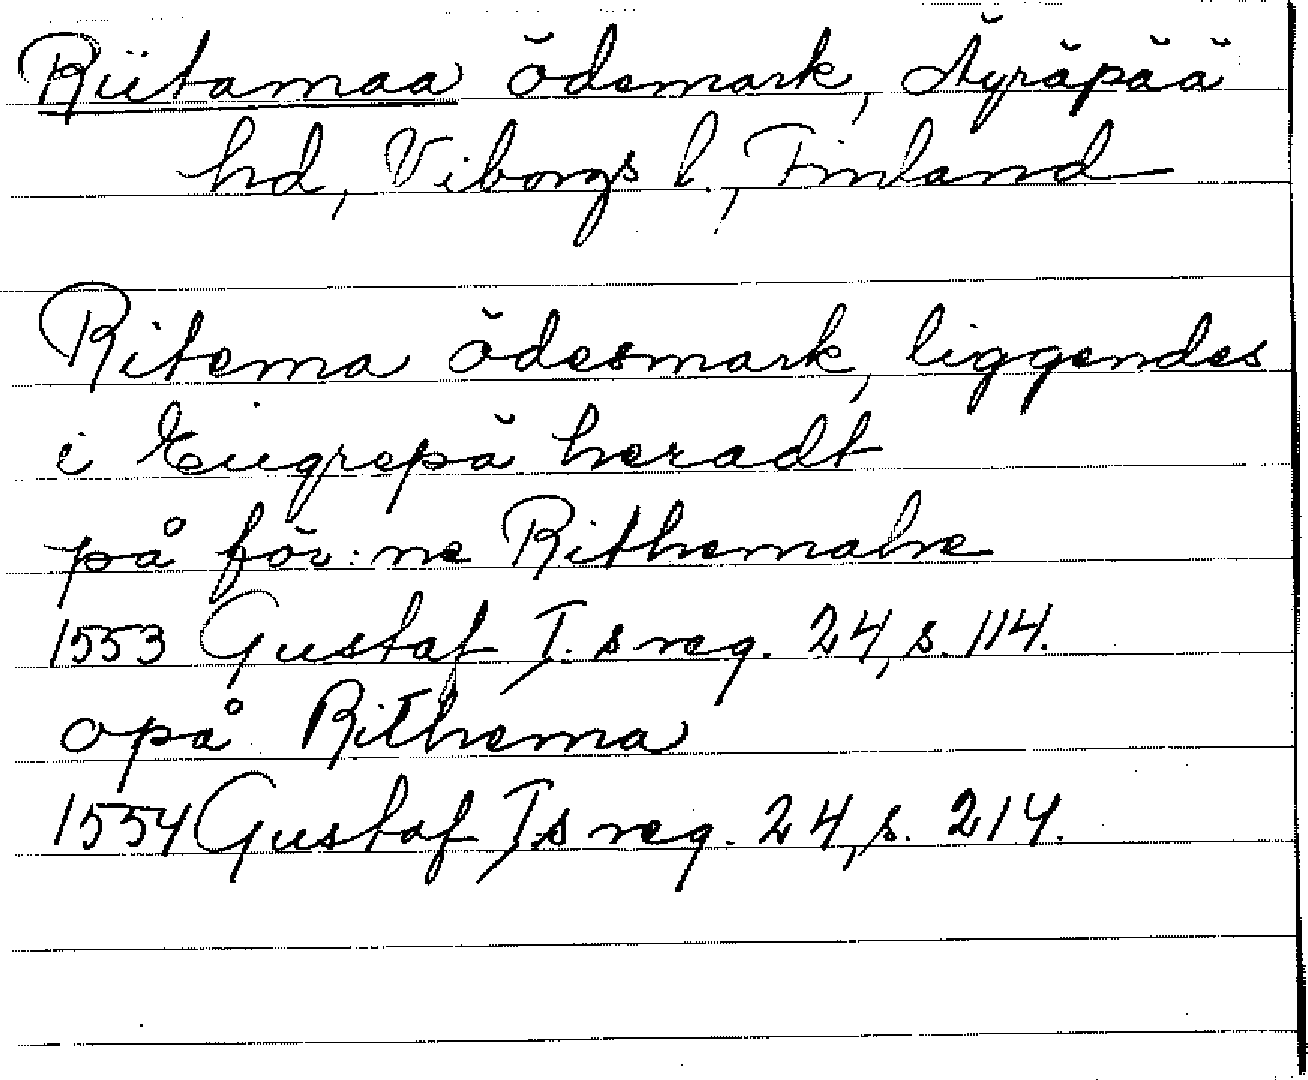 Riitamaa ödemark, Äyräpää
hd, Viborgs l., Finland
Ritema ödesmark, liggendes
i Eügrepä heradt
på för:ne Rithemahe
1553 Gustaf I.s reg. 24, s. 114.
opå Rithema
1554 Gustaf I.s reg. 24, s. 214.